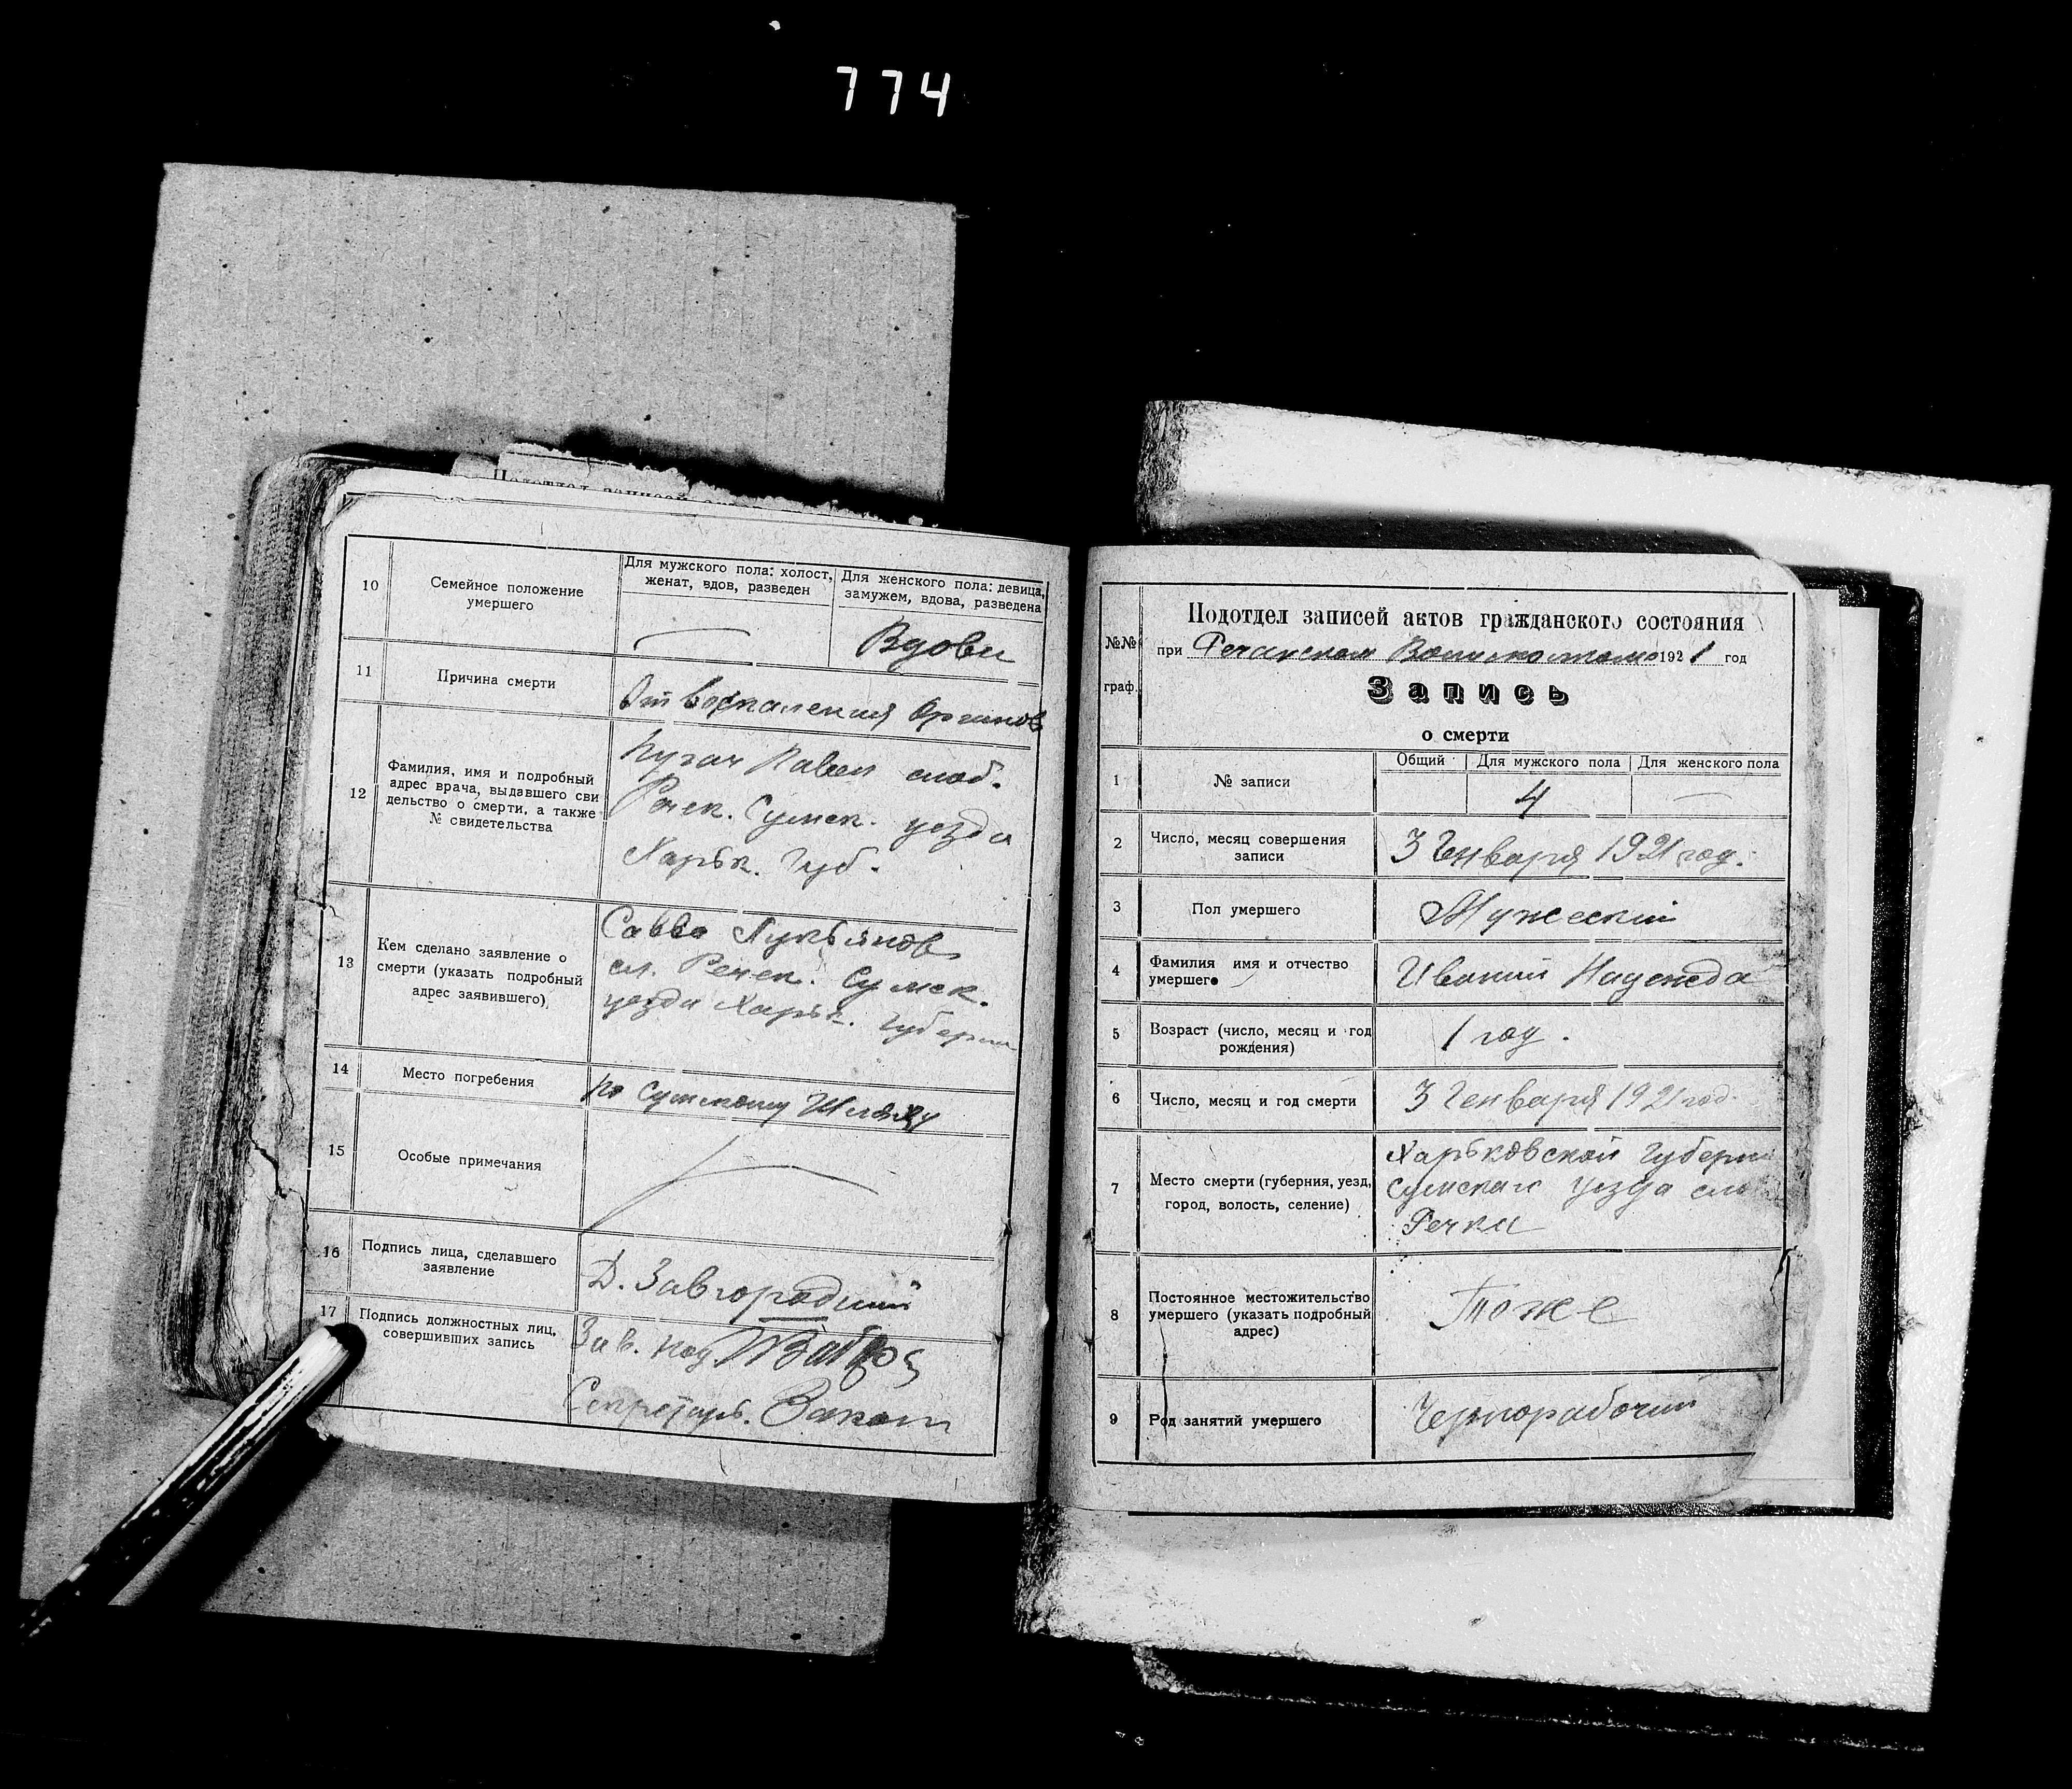 774
10
Семейное положение
умершего
Для мужского пола: холост,
женат, вдов, разведен
Для женского пола: девица,
замужем, вдова, разведена
Вдова
11
Причина смерти
От воспаления Органов
12
Фамилия, имя и подробный
адрес врача, выдавшего сви
дельство о смерти, а также
№ свидетельства
Пугач Павел слоб.
Речек. Сумск. уезда
Харьк. Губ.
13
Кем сделано заявление о
смерти (указать подробный
адрес заявившего)
Савва Лукьянов
сл. Речек. Сумск.
уезда Харьк. губерни
14
Место погребения
по Сумскому Шляху
15
Особые примечания
16
Подпись лица, сделавшего
заявление
Д. Завгородний
17
Подпись должностных лиц,
совершивших запись
Зав. под
Секретарь.
№№
граф.
Подотдел записей актов гражданского состояния
при Речанском 1921 год
Запись
о смерти
1
№ записи
Общий
Для мужского пола
Для женского пола
4
2
Число, месяц совершения
записи
3 Генваря 1921 год.
3
Пол умершего
Мужеский
4
Фамилия имя и отчество
умершего
Иваний Надежда
5
Возраст (число, месяц и год
рождения)
1 год.
6
Число, месяц и год смерти
3 Генваря 1921 год.
7
Место смерти (губерния, уезд,
город, волость, селение)
Харьковской губерни
Сумскаго уезда сло
Речки
8
Постоянное местожительство
умершего (указать подробный
адрес)
Тоже
9
Род занятий умершего
Чернорабочий